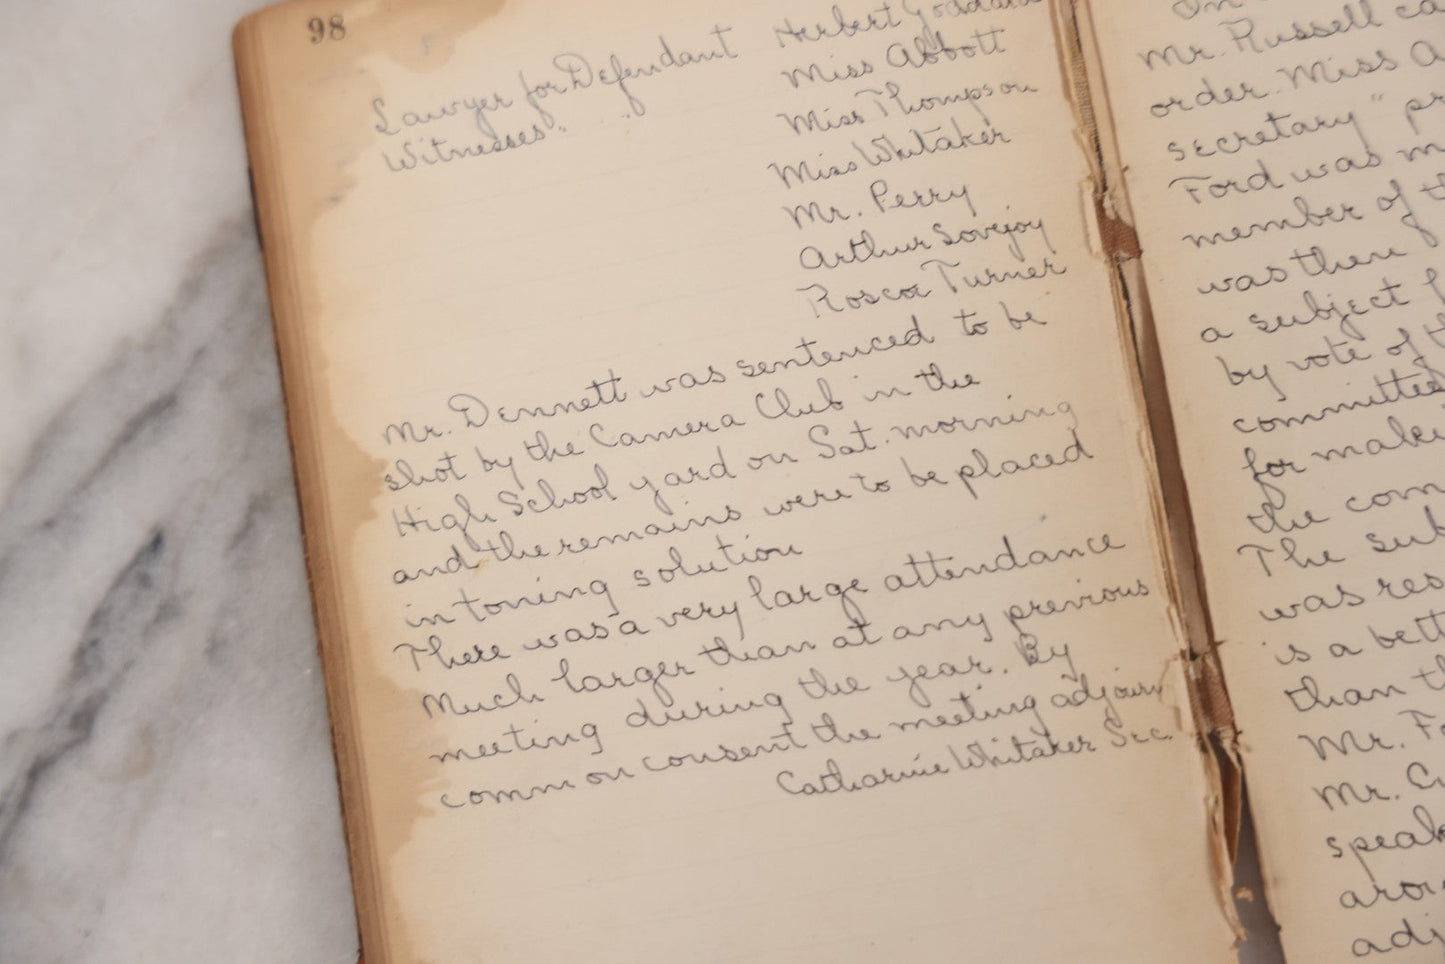 98
Lawyer for Defendant Herbert Goddard
Witnesses " " Miss Abbott
Miss Thompson
Miss Whitaker
Mr. Perry
Arthur Lovejoy
Roscoe Turner
Mr. Dennett was sentenced to be
shot by the Camera Club in the
High School yard on Sat. morning
and the remains were to be placed
in toning solution
There was a very large attendance
Much larger than at any previous
meeting during the year. By
common consent the meeting adjourn
Catharine Whitaker Sec.
In
Mr. Russell ca
order. Miss A
secretary " pr
Ford was m
member of t
was then
a subject f
by vote of t
committee
for makin
the com
The sub
was res
is a bett
than t
Mr. Fo
Mr. C
speak
arou
adj